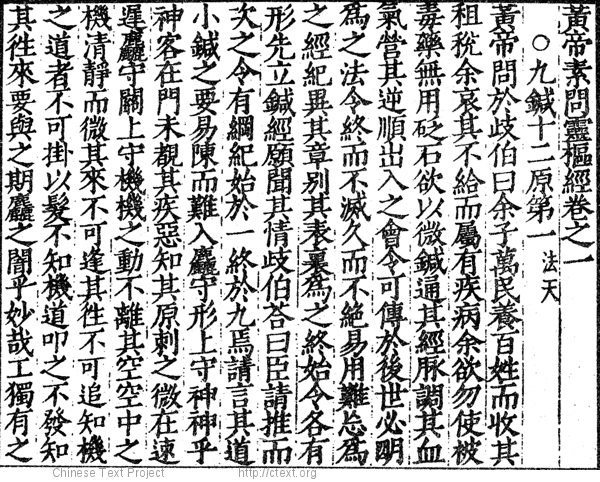 黃帝素問靈樞經卷之一
○九鍼十二原第一 法天
黃帝問於歧伯曰余子萬民養百姓而收其
租稅余哀其不給而屬有疾病余欲勿使被
毒藥無用砭石欲以微鍼通其經脉調其血
氣營其逆順出入之會令可傳於後世必明
爲之法令終而不滅久而不絕易用難忘爲
之經紀異其章別其表裏爲之終始令各有
形先立鍼經願聞其情歧伯荅曰臣請推而
次之令有綱紀始於一終於九焉請言其道
小鍼之要易陳而難入麤守形上守神神乎
神客在門未覩其疾惡知其原刺之微在速
遲麤守關上守機機之動不離其空空中之
機清靜而微其來不可逢其徃不可追知機
之道者不可掛以髮不知機道叩之不發知
其徃來要與之期麤之闇乎妙哉工獨有之
Chinese Text Project http://ctext.org